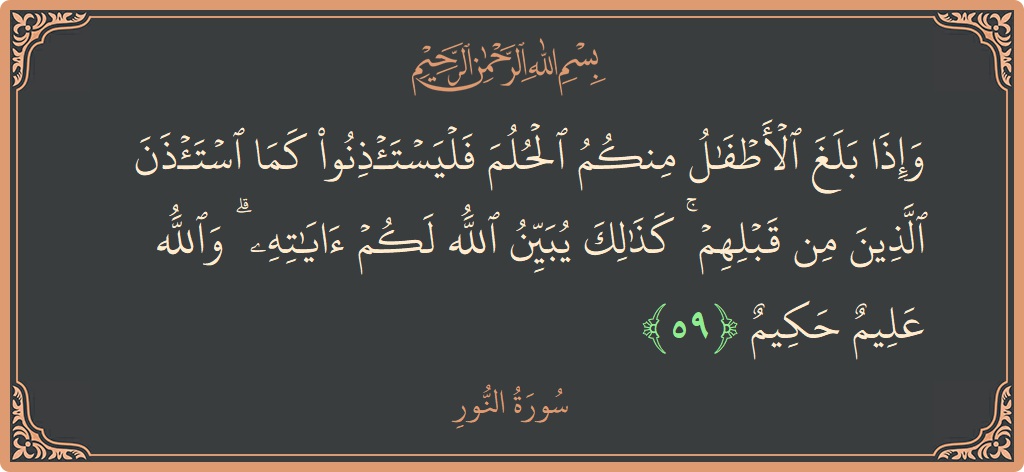 بِسْمِ اللَّهِ الرَّحْمَٰنِ الرَّحِيمِ
وَإِذَا بَلَغَ ٱلْأَطْفَٰلُ مِنكُمُ ٱلْحُلُمَ فَلْيَسْتَـْٔذِنُوا۟ كَمَا ٱسْتَـْٔذَنَ
ٱلَّذِينَ مِن قَبْلِهِمْ ۚ كَذَٰلِكَ يُبَيِّنُ ٱللَّهُ لَكُمْ ءَايَٰتِهِۦ ۗ وَٱللَّهُ
عَلِيمٌ حَكِيمٌ ﴿٥٩﴾
سُورَةُ النُّورِ